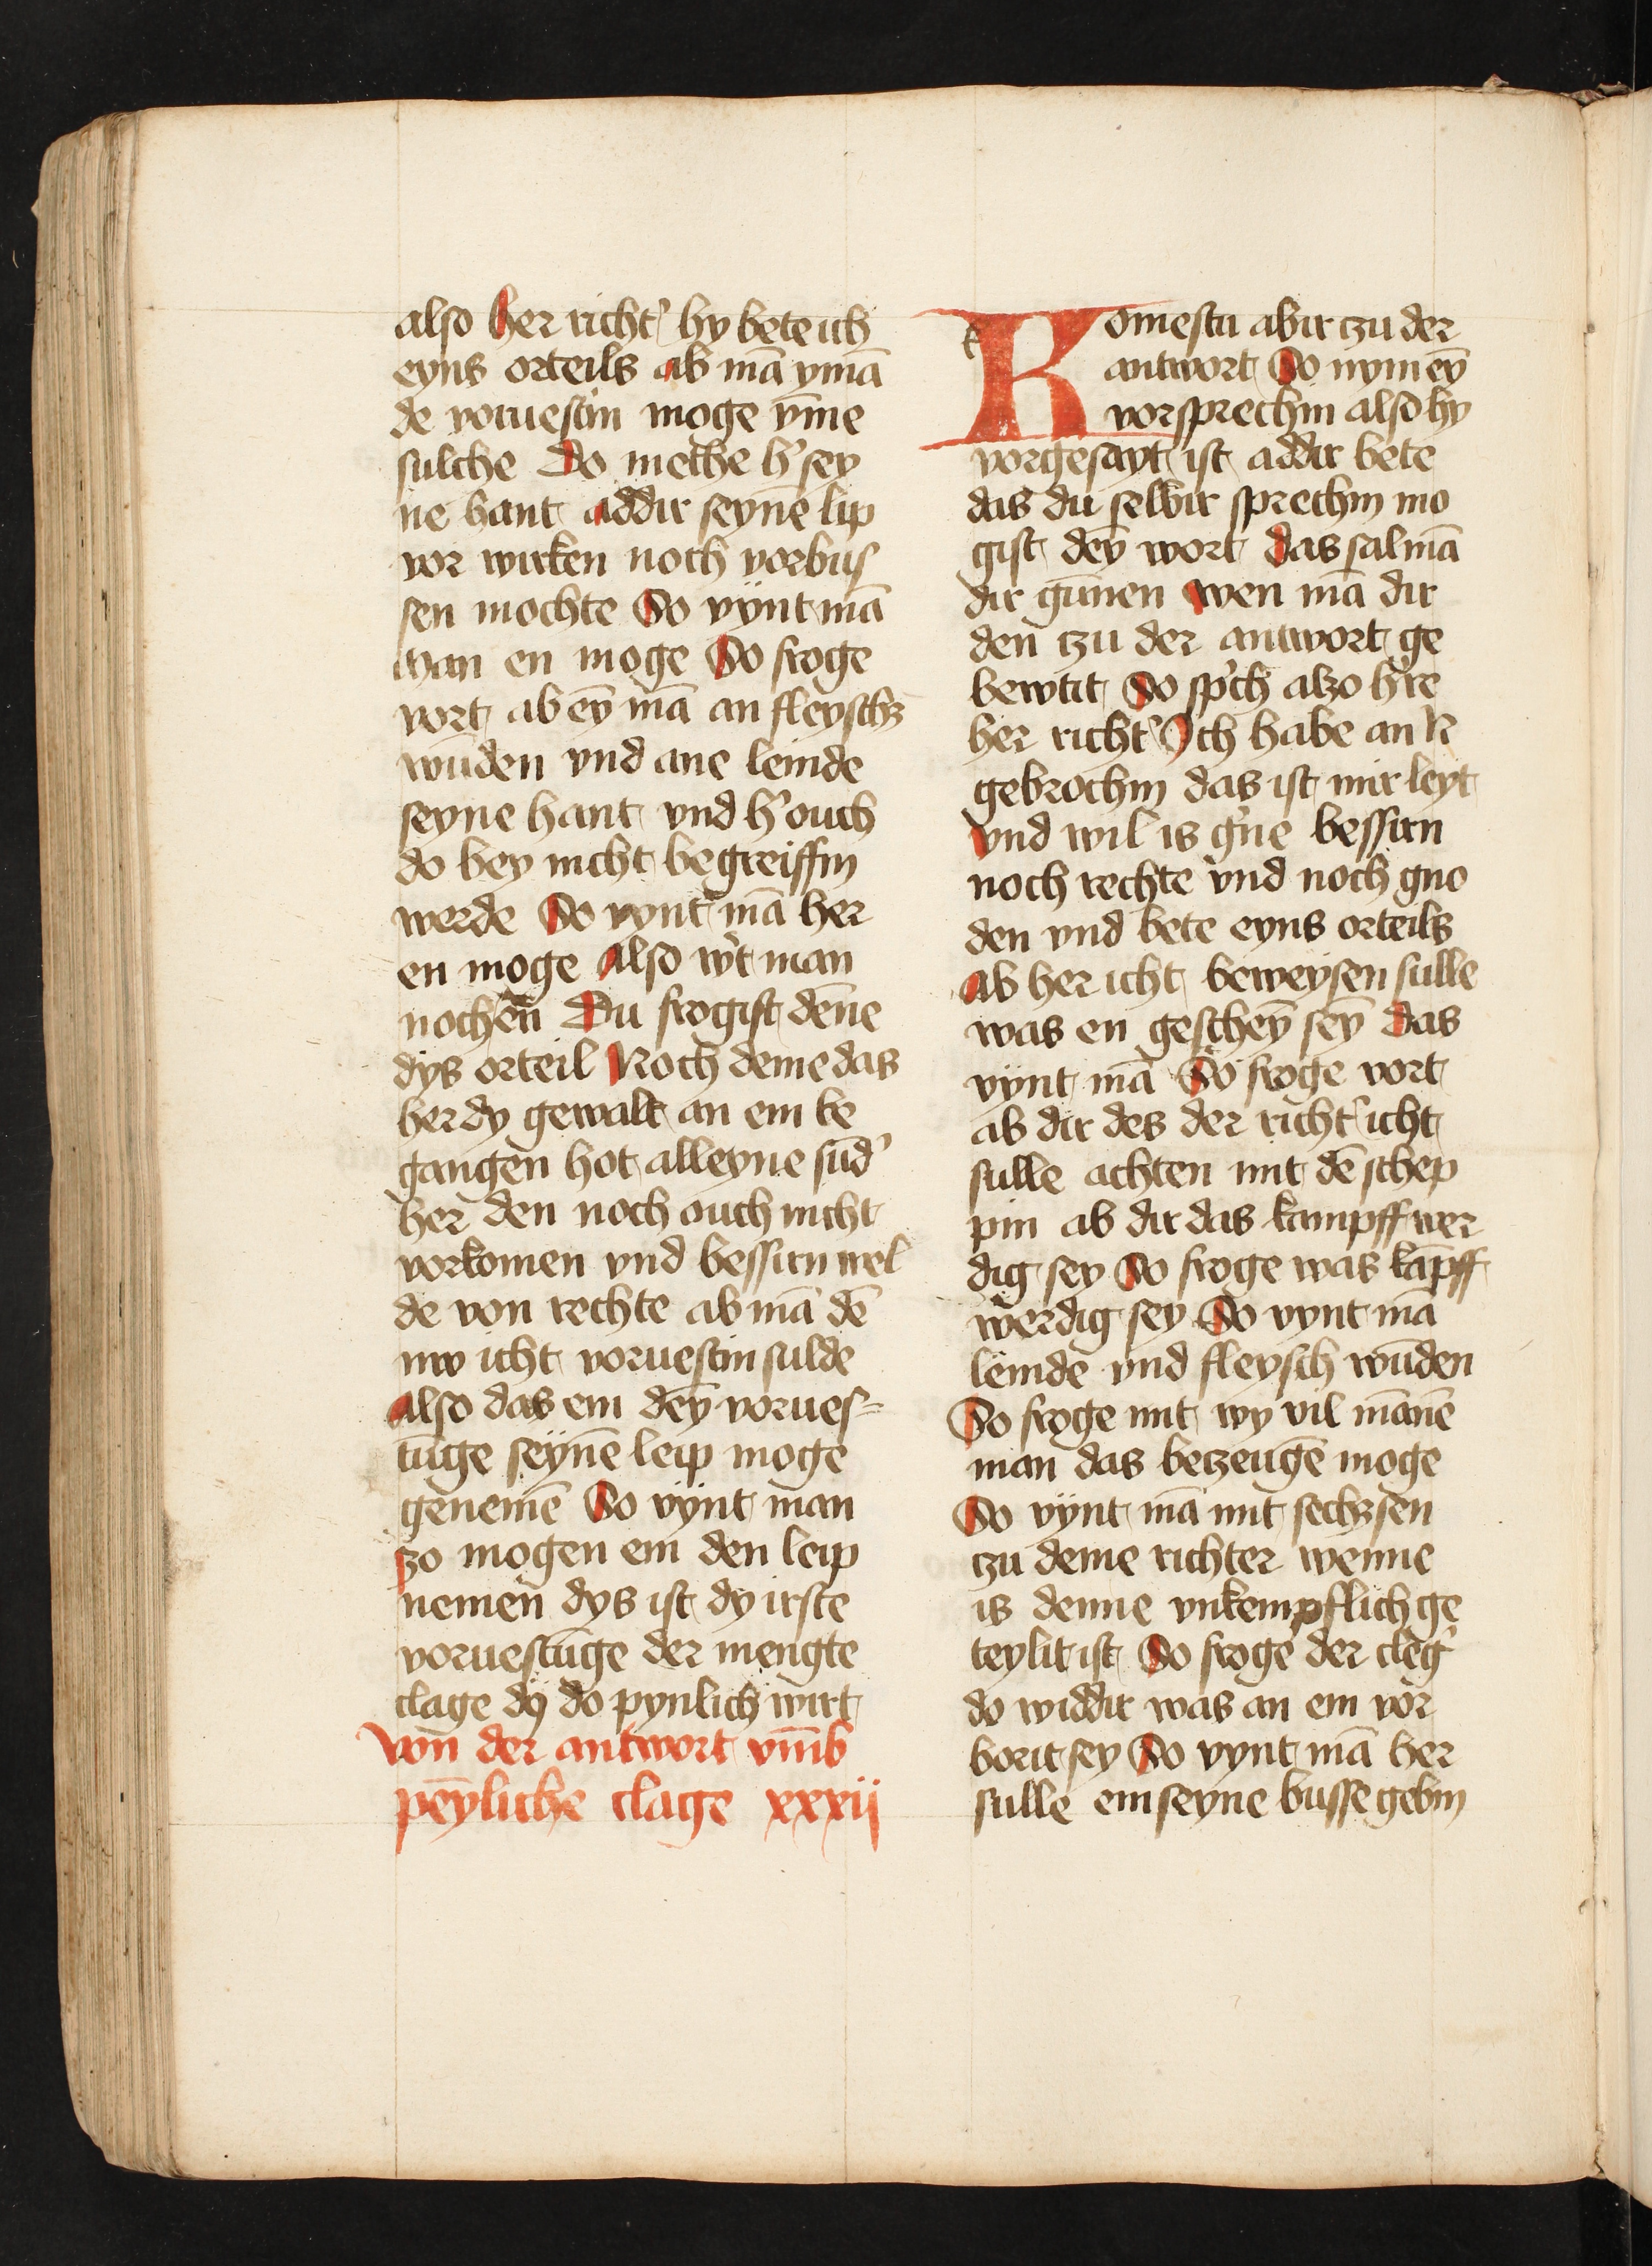 also her richt' hy bete ich
eyns orteils ab mā ymā
de voruestin moge ym̄e
sulche Do methe h' sey
ne hant addir seynē lip
vor wirken noch vorbus
sen mochte So vynt mā
man en moge So froge
vort ab ey̅ mā an fleyschz
wūden vnd ane lemde
seyne hant vnd h' ouch
do bey nicht begreiffin
werde So vynt mā her
en moge Also w't man
nochen Du frogist den̄e
dys orteil Noch deme das
her dy gewalt an em be
gangen hot alleyne sūd'
her den noch ouch nicht
vorkomen vnd bessirn wel
de von rechte ab mā dē
nw icht voruestin sulde
Also das em dey̅ vorues-
tūge seynē leip moge
genemē So vynt man
zo mogen em den leip
nemen dys ist dy irste
voruestūge der mengte
clage dy do pynlich wirt
Von der antwort vm̄b
pey̅liche clage xxxii
Komestu abir czu der
antwort So nym ey̅
vorsprechin also hy
vorgesayt ist addir bete
das du selbir sprechin mo
gist dey̅ wort das sal mā
dir gūnen wen mā dir
den czu der antwort ge
bewtit So sp'ch alzo h're
her richt' Ich habe an R
gebrochin das ist mir leyt
vnd wil is g'ne bessirn
noch rechte vnd noch gno
den vnd bete eyns orteils
Ab her icht beweysen sulle
was en geschey̅ sey̅ Das
vynt mā So froge vort
ab dir des der richt' icht
sulle achten mit dē schep
pin ab dir das kampff wer
dig sey So froge was kāpff
werdig sey So vynt mā
lemde vnd fleysch wūden
So froge mit wy vil mānē
man das beczeugē moge
So vynt mā mit sechzsen
czu deme richter wenne
is denne vnkempflich ge
teylit ist So froge der cleg'
do widdir was an em vor
borit sey So vynt mā her
sulle em seyne busse gebin